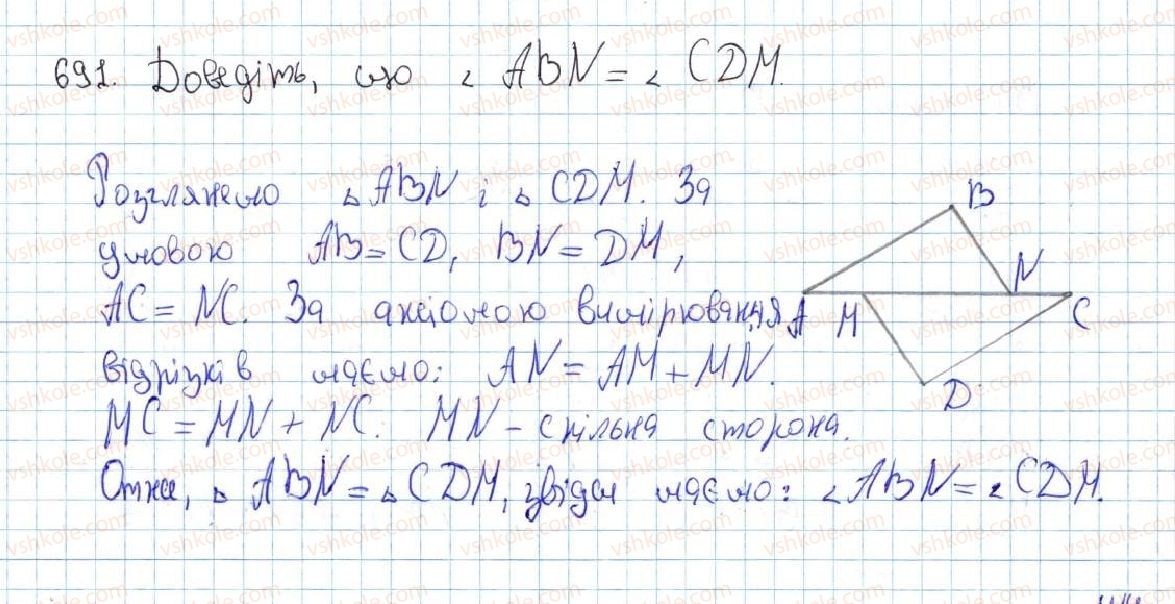 691. Доведіть, що ∠ ABN = ∠ CDM.
Розглянемо △ ABN і △ CDM. За
умовою AB = CD, BN = DM,
AC = NC. За аксіомою вимірювання
відрізків маємо: AN = AM + MN.
MC = MN + NC. MN - спільна сторона.
Отже, △ ABN = △ CDM, звідси маємо: ∠ ABN = ∠ CDM.
B
N
A M C
D
vshkole.com